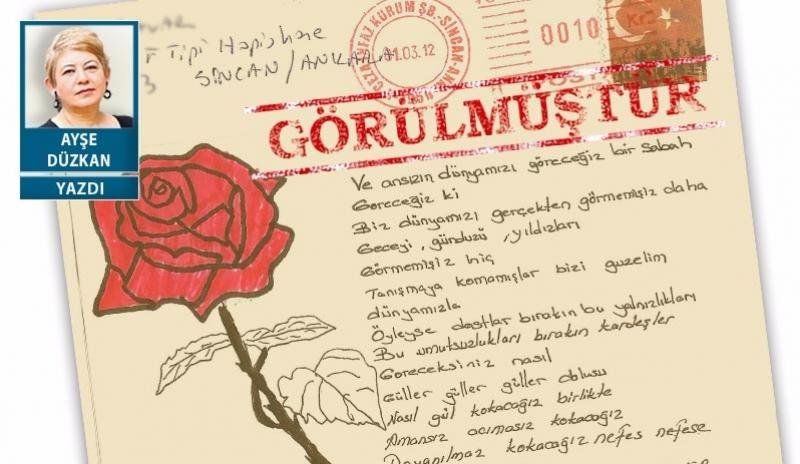 T Tipi Hapishane
3
SİNCAN/ANKARA
CEZA İNFAZ KURUM ŞB.-SİNCAN-AN
11.03.12
0010
Kr
GÖRÜLMÜŞTÜR
AYŞE
DÜZKAN
YAZDI
Ve ansızın dünyamızı göreceğiz bir sabah
Goreceğiz ki
Biz dünyamızı gerçekten görmemişiz daha
Geceyi, gündüzü, yıldızları
Görmemişiz hiç
Tanışmaya komamışlar bizi guzelim
dünyamızla
Öyleyse dostlar bırakın bu yalnızlıkları
Bu umutsuzlukları bırakın kardeşler
Goreceksiniz nasıl
Güller güller güller dolusu
Nasıl gül kokacağız birlikte
Amansız acımasız kokacağız
Dayanılmaz kokacağız nefes nefese